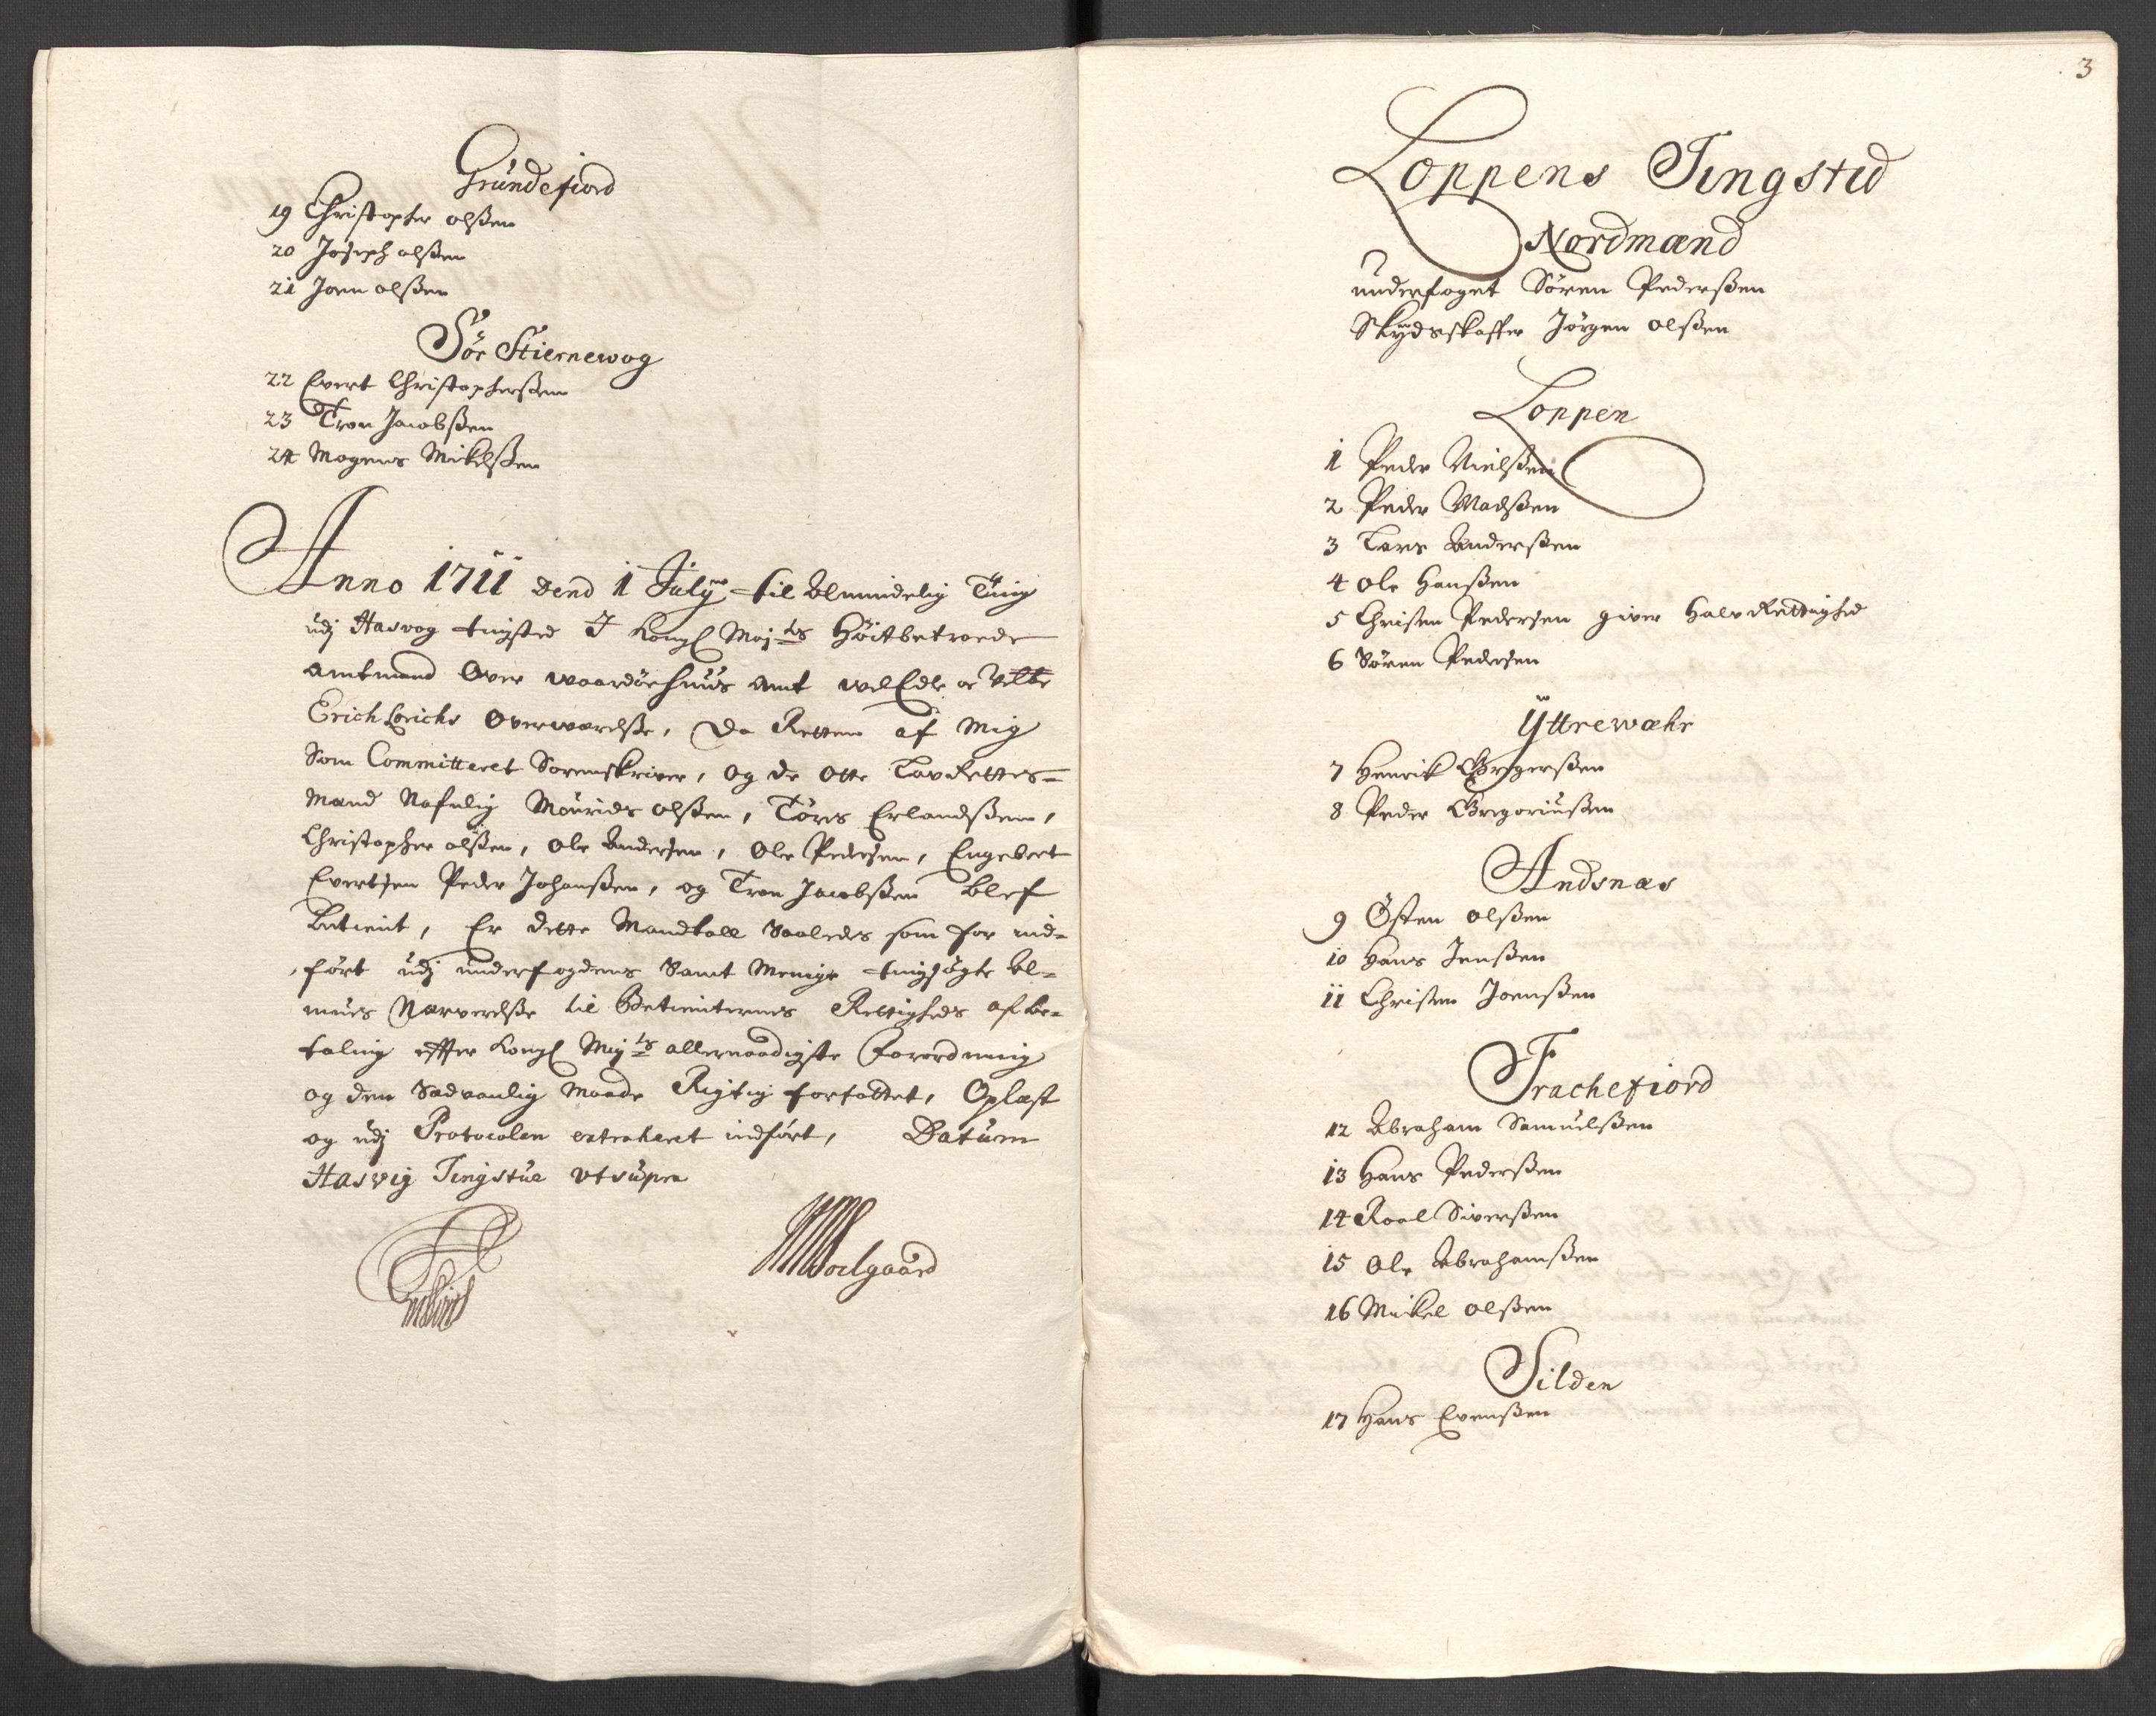 Grundefiord
19 Christopher olßen
20 Joseph olßen
21 Joen olßen
Sör Stiernewog
22 Evert Christopherßen
23 Tron Jacobßen
24 Mogens Mickelßen
Anno 1711 dend 1 July til Almindelig Ting
udj Hasvog tingsted J Kongl Maj:ts Höitbetroede
Amtmand Over Waardöehuus Amt WelEdle
Erich Lorichs Overwærelse, da Retten af Mig
Som Committeret Sorenskriver, og de Otte LavRettes-
mænd Nafnlig Mourids olßen, Törres Erlandßen,
Christopher olßen, Ole Andersen, Ole Pedersen, Engebret
Evertsen Peder Johanßen, og Tron Jacobßen blef
betient, Er dette Mandtall Saaledes som for ind-
fört udj underfogdens Samt Menige tingsögte Al-
mues Nærverelße til Betienternes Rettigheds afbe-
taling effter Kongl May:ts allernaadigste Forordning
og den Sædvanlig Maade Rigtig forfattet, Oplæst
og udj Protocolen extraheret indfört, Datum
Hasvig Tingstue ut supra
3
Loppens Tingsted
Nordmænd
underfoget Sören Pederßen
Skydsskaffer Jörgen olßen
Loppen
1 Peder Nielßen
2 Peder Madßen
3 Lars Anderßen
4 Ole Hanßen
5 Christen Pedersen giver Halv Rettighed
6 Sören Pedersen
Yttrewæhr
7 Henrik Gregerßen
8 Peder Gregoriußen
Andsnæs
9 Östen olßen
10 Hans Jenßen
11 Christen Joenßen
Frachefiord
12 Abraham Samuelßen
13 Hans Pederßen
14 Roal Siverßen
15 Ole Abrahamßen
16 Mickel olßen
Silden
17 Hans Evenßen